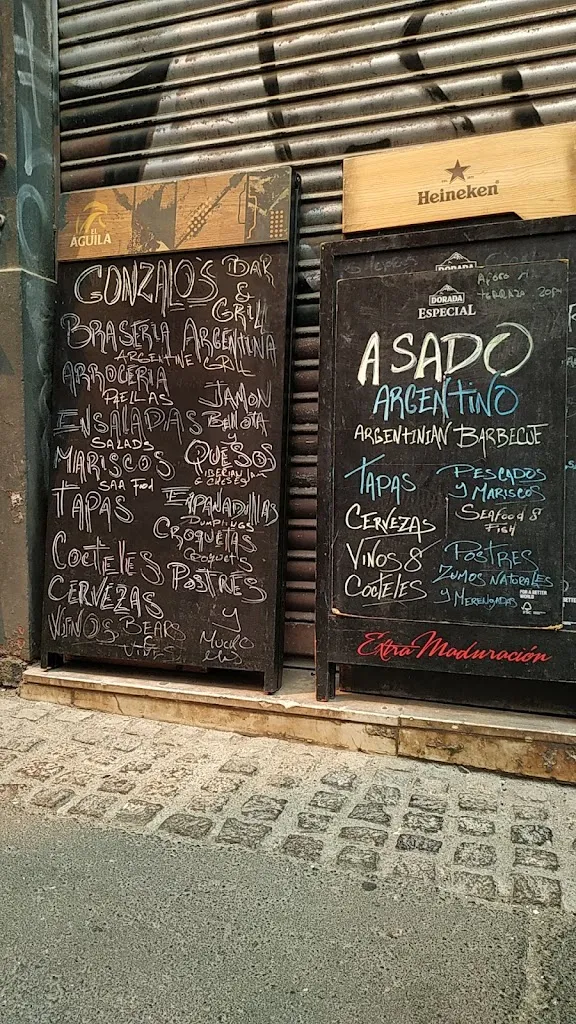 EL
AGUILA
GONZALO'S BAR
& GRILL
BRASERIA ARGENTINA
ARGENTINE GRILL
ARROCERIA
PAELLAS
ENSALADAS
SALADS
MARISCOS
SAA FOOD
TAPAS
COCTELES
CERVEZAS
VINOS BEARS
&
VINES
JAMON
BELLOTA
Y
QUESOS
& CHESES
EMPANADILLAS
DUMPLINGS
CROQUETAS
CROQUETS
POSTRES
Y
MUCHO
MAS
Heineken
DORADA
DORADA
ESPECIAL
ASADO
ARGENTINO
ARGENTINIAN BARBECUE
TAPAS
CERVEZAS
VINOS &
COCTELES
PESCADOS
Y MARISCOS
SEAFOOD &
FISH
POSTRES
ZUMOS NATURALES
Y MERENGADAS
FOR A BETTER
WORLD
Extra Maduración